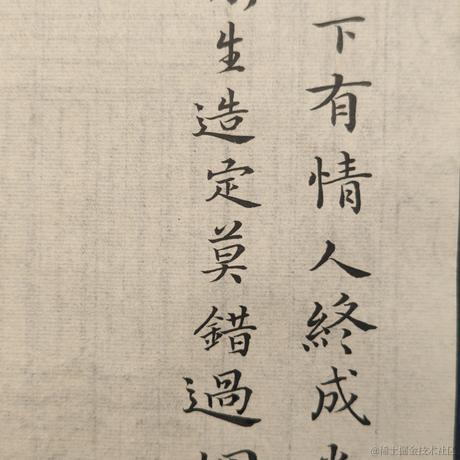 下有情人終成
生造定莫錯過
@稀土掘金技术社区